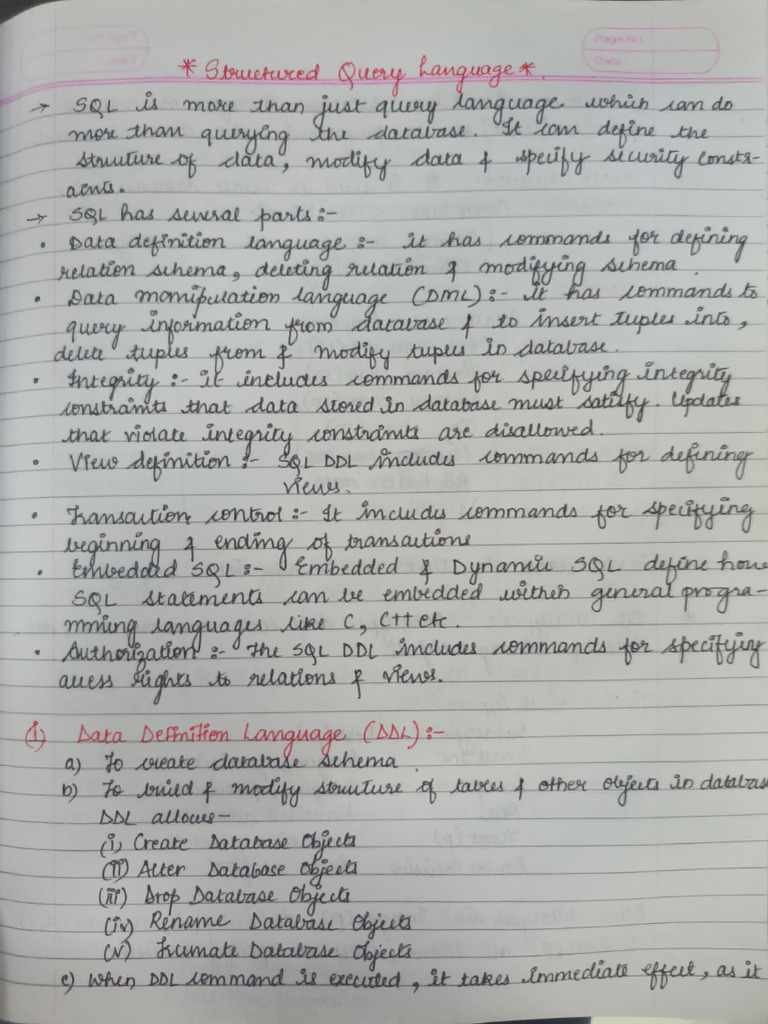 Page No.
Date:
* Structured Query Language *.
→ SQL is more than just query language which can do
more than querying the database. It can define the
struture of data, modify data & specify security constr-
aints.
→ SQL has several parts :-
• Data definition language :- it has commands for defining
relation schema, deleting relation & modifying schema.
• Data manipulation language (DML) :- It has commands to
query information from database & to insert tuples into,
delete tuples from & modify tuples in database.
• Integrity :- it includes commands for specifying integrity
constraints that data stored in database must satisfy. Updates
that violate integrity constraints are disallowed.
• View definition :- SQL DDL includes commands for defining
views.
• Transaction control :- It includes commands for specifying
beginning & ending of transactions
• Embedded SQL :- Embedded & Dynamic SQL define how
SQL statements can be embedded within general progra-
mming languages like C, C++ etc.
• Authorization :- The SQL DDL includes commands for specifying
access rights to relations & views.
(1) Data Definition Language (DDL) :-
a) To create database schema.
b) To build & modify struture of tables & other objects in database
DDL allows -
(i) Create Database Objects
(ii) Alter Database Objects
(iii) Drop Database Objects
(iv) Rename Database Objects
(v) Trumate Database Objects
c) When DDL command is executed, it takes immediate effect, as it